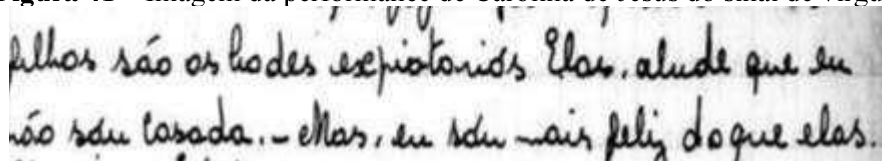 filhos são os bodes expiatoriós Elas, alude que eu
não sou casada. - Mas, eu sou mais feliz do que elas.